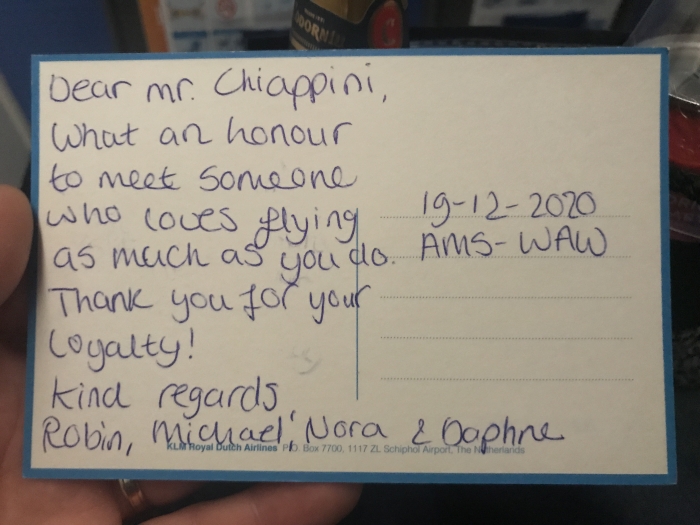 Dear mr. Chiappini,
What an honour
to meet someone
who loves flying
as much as you do.
Thank you for your
loyalty!
kind regards
Robin, Michael, Nora & Daphne
19-12-2020
AMS-WAW
KLM Royal Dutch Airlines P.O. Box 7700, 1117 ZL Schiphol Airport, The Netherlands